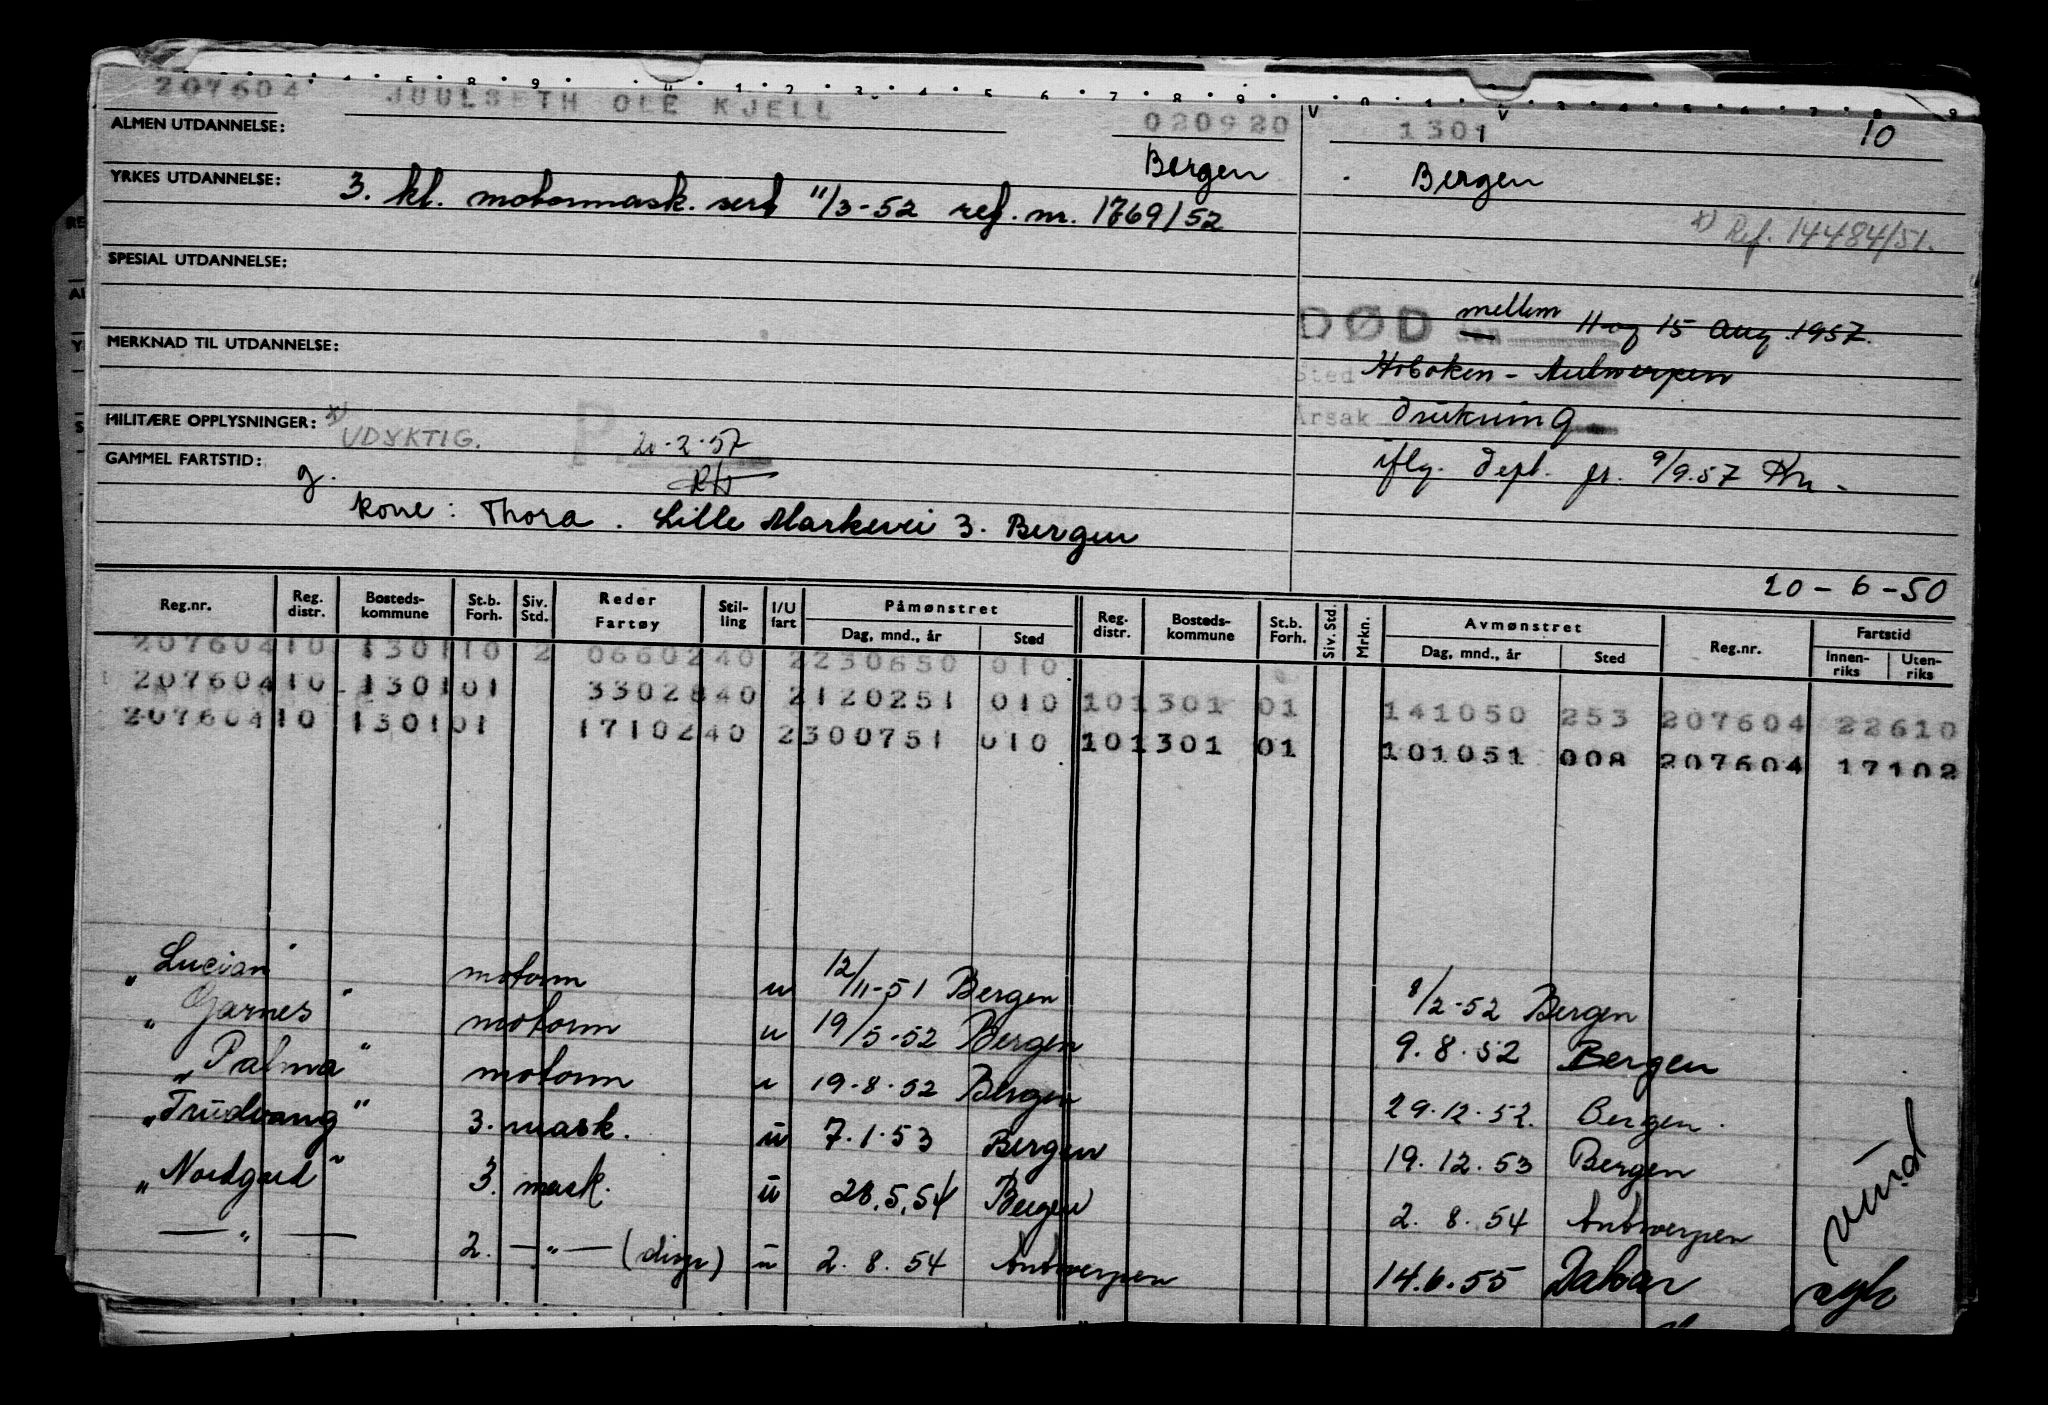 207604 JUULSETH OLE KJELL 020920 1301 10
ALMEN UTDANNELSE: Bergen Bergen
YRKES UTDANNELSE: 3. kl. motormask. sert 11/3-52 ref. nr. 1769/52
x) Ref. 14484/51.
SPESIAL UTDANNELSE:
DØD den mellem 11 og 15 Aug. 1957.
MERKNAD TIL UTDANNELSE:
Sted Hoboken - Antwerpen
MILITÆRE OPPLYSNINGER: x) UDYKTIG. P. 20-2-57
Årsak drukning
GAMMEL FARTSTID: g.
iflg. dept. fr. 9/9.57
kone: Thora. Lille Markevei 3. Bergen
20-6-50
Reg.nr. Reg. distr. Bosteds-kommune St.b. Forh. Siv. Std. Reder Fartøy Stil-ling I/U fart Påmønstret Dag, mnd., år Sted Reg. distr. Bosteds-kommune St.b. Forh. Siv. Std. Mrkn. Avmønstret Dag, mnd., år Sted Reg.nr. Fartstid Innen-riks Uten-riks
207604 10 1301 10 2 06602 40 2 230650 010
207604 10 1301 01 33028 40 2 120251 010 10 1301 01 141050 253 207604 22610
207604 10 1301 01 17102 40 2 300751 010 10 1301 01 101051 008 207604 17102
"Lucian" motorm u 12/11-51 Bergen 8/2-52 Bergen
"Garnes" motorm u 19/5-52 Bergen 9.8.52 Bergen
"Palma" motorm u 19-8-52 Bergen 29.12.52. Bergen.
"Trudvang" 3. mask. u 7.1.53 Bergen 19.12.53 Bergen
"Nordgard" 3. mask. u 28.5.54 Bergen 2.8.54 Antwerpen
— " — 2. — " — (disp) u 2.8.54 Antwerpen 14.6.55 Dakar syk
vund